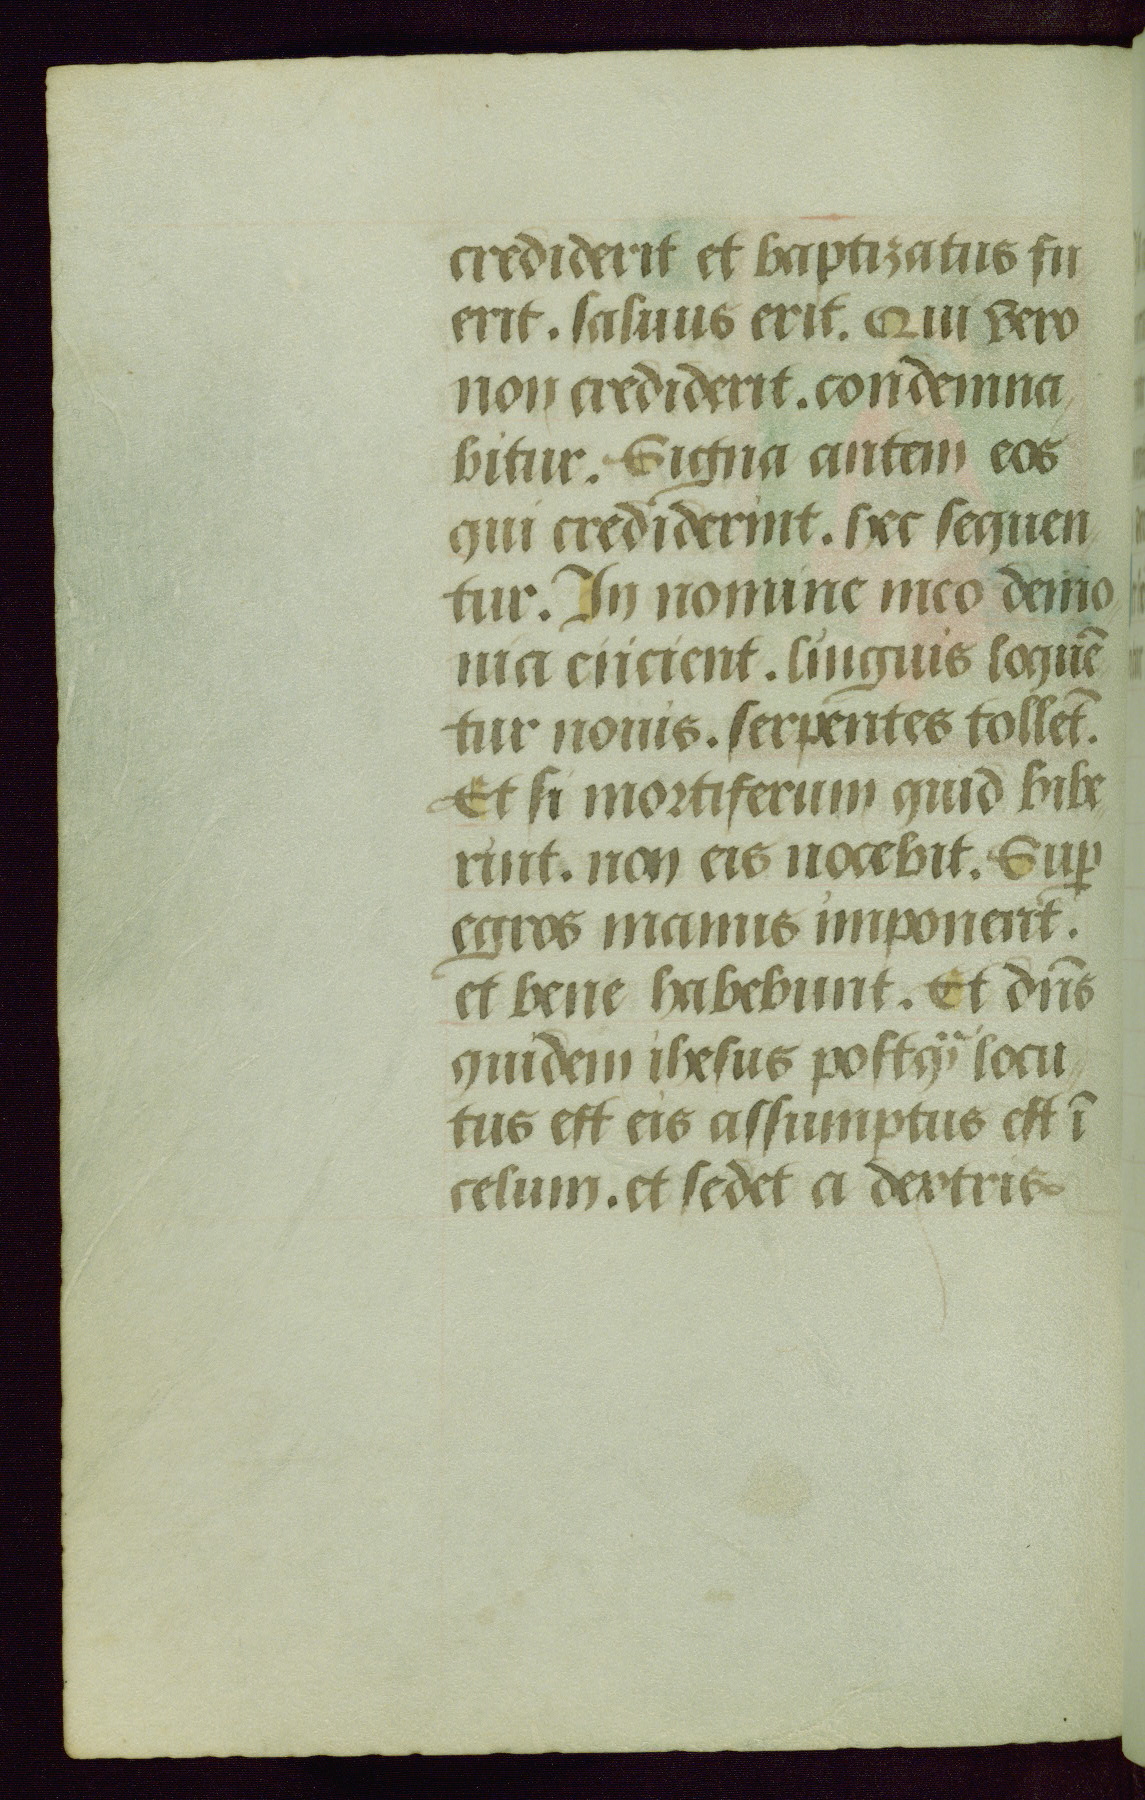 crediderit et baptizatus fu
erit. saluus erit. Qui vero
non crediderit. condemna
bitur. Signa autem eos
qui crediderint. hec sequen
tur. In nomine meo demo
nia eiicient. linguis loquē
tur nouis. serpentes tollēt.
Et si mortiferum quid bibe
rint. non eis nocebit. Suꝑ
egros manus imponent.
et bene habebunt. Et dn̄s
quidem ihesus postqᷓ locu
tus est eis assumptus est ī
celum. et sedet a dextris